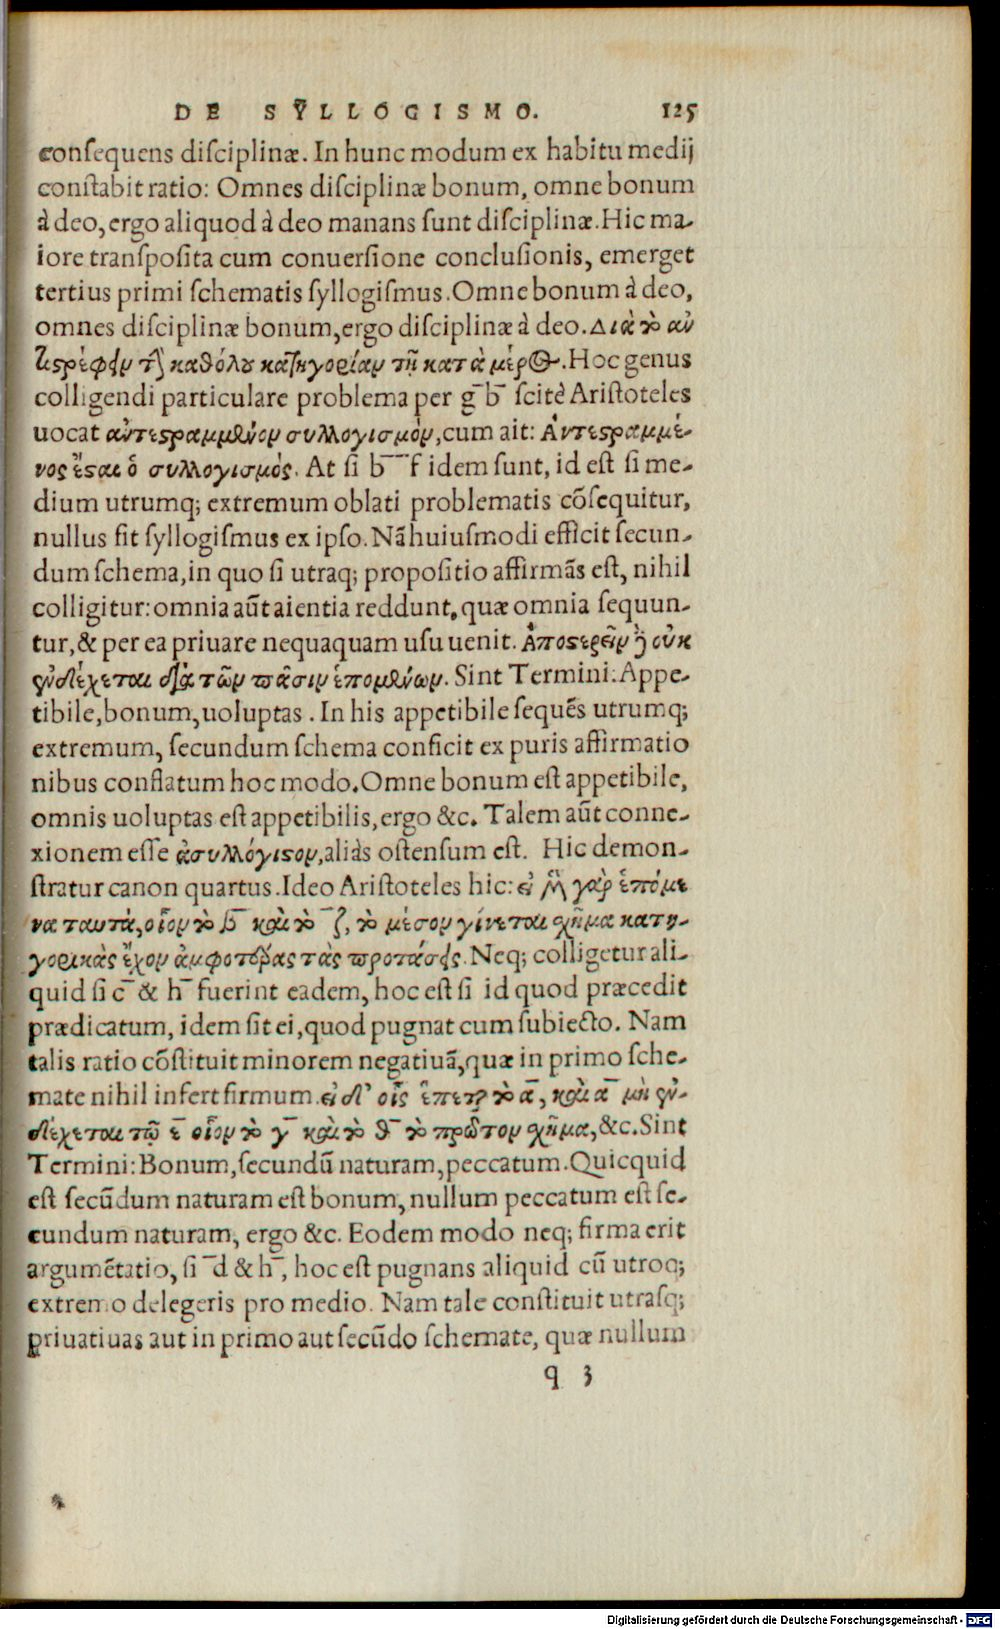 DE SYLLOGISMO. 125
consequens disciplinæ. In hunc modum ex habitu medij
constabit ratio: Omnes disciplinæ bonum, omne bonum
à deo, ergo aliquod à deo manans sunt disciplinæ. Hic ma-
iore transposita cum conuersione conclusionis, emerget
tertius primi schematis syllogismus. Omne bonum à deo,
omnes disciplinæ bonum, ergo disciplinæ à deo. Διὰ τὸ ἀν
τιστρέφειν τὴν καθόλου κατηγορίαν τῇ κατὰ μέρος. Hoc genus
colligendi particulare problema per g̅ b̅ scitè Aristoteles
uocat ἀντεστραμμένον συλλογισμόν, cum ait: Ἀντεστραμμέ-
νος ἔσται ὁ συλλογισμός. At si b̅ ̅f idem sunt, id est si me-
dium utrumq; extremum oblati problematis cõsequitur,
nullus fit syllogismus ex ipso. Nã huiusmodi efficit secun-
dum schema, in quo si utraq; propositio affirmãs est, nihil
colligitur: omnia aũt aientia reddunt, quæ omnia sequun-
tur, & per ea priuare nequaquam usu uenit. Ἀποστερεῖν ἢ οὐκ
ἐνδέχεται διὰ τῶν πᾶσιν ἑπομένων. Sint Termini: Appe-
tibile, bonum, uoluptas. In his appetibile sequẽs utrumq;
extremum, secundum schema conficit ex puris affirmatio
nibus conflatum hoc modo. Omne bonum est appetibile,
omnis uoluptas est appetibilis, ergo &c. Talem aũt conne-
xionem esse ἀσυλλόγιστον, aliàs ostensum est. Hic demon-
stratur canon quartus. Ideo Aristoteles hic: εἰ μὲν γὰρ ἑπόμε
να ταυτά, οἷον τὸ β̅ καὶ τὸ ̅ζ, τὸ μέσον γίνεται σχῆμα κατη-
γορικὰς ἔχον ἀμφοτέρας τὰς προτάσεις. Neq; colligetur ali-
quid si c̅ & h̅ fuerint eadem, hoc est si id quod præcedit
prædicatum, idem sit ei, quod pugnat cum subiecto. Nam
talis ratio cõstituit minorem negatiuã, quæ in primo sche-
mate nihil infert firmum. εἰ δ' οἷς ἕπεται τὸ α̅, καὶ α̅ μὴ ἐν-
δέχεται τῷ ε̅ οἷον τὸ γ̅ καὶ τὸ θ̅ τὸ πρῶτον σχῆμα, &c. Sint
Termini: Bonum, secundũ naturam, peccatum. Quicquid
est secũdum naturam est bonum, nullum peccatum est se-
cundum naturam, ergo &c. Eodem modo neq; firma erit
argumẽtatio, si ̅d & h̅, hoc est pugnans aliquid cũ utroq;
extremo delegeris pro medio. Nam tale constituit utrasq;
priuatiuas aut in primo aut secũdo schemate, quæ nullum
q 3
Digitalisierung gefördert durch die Deutsche Forschungsgemeinschaft - DFG